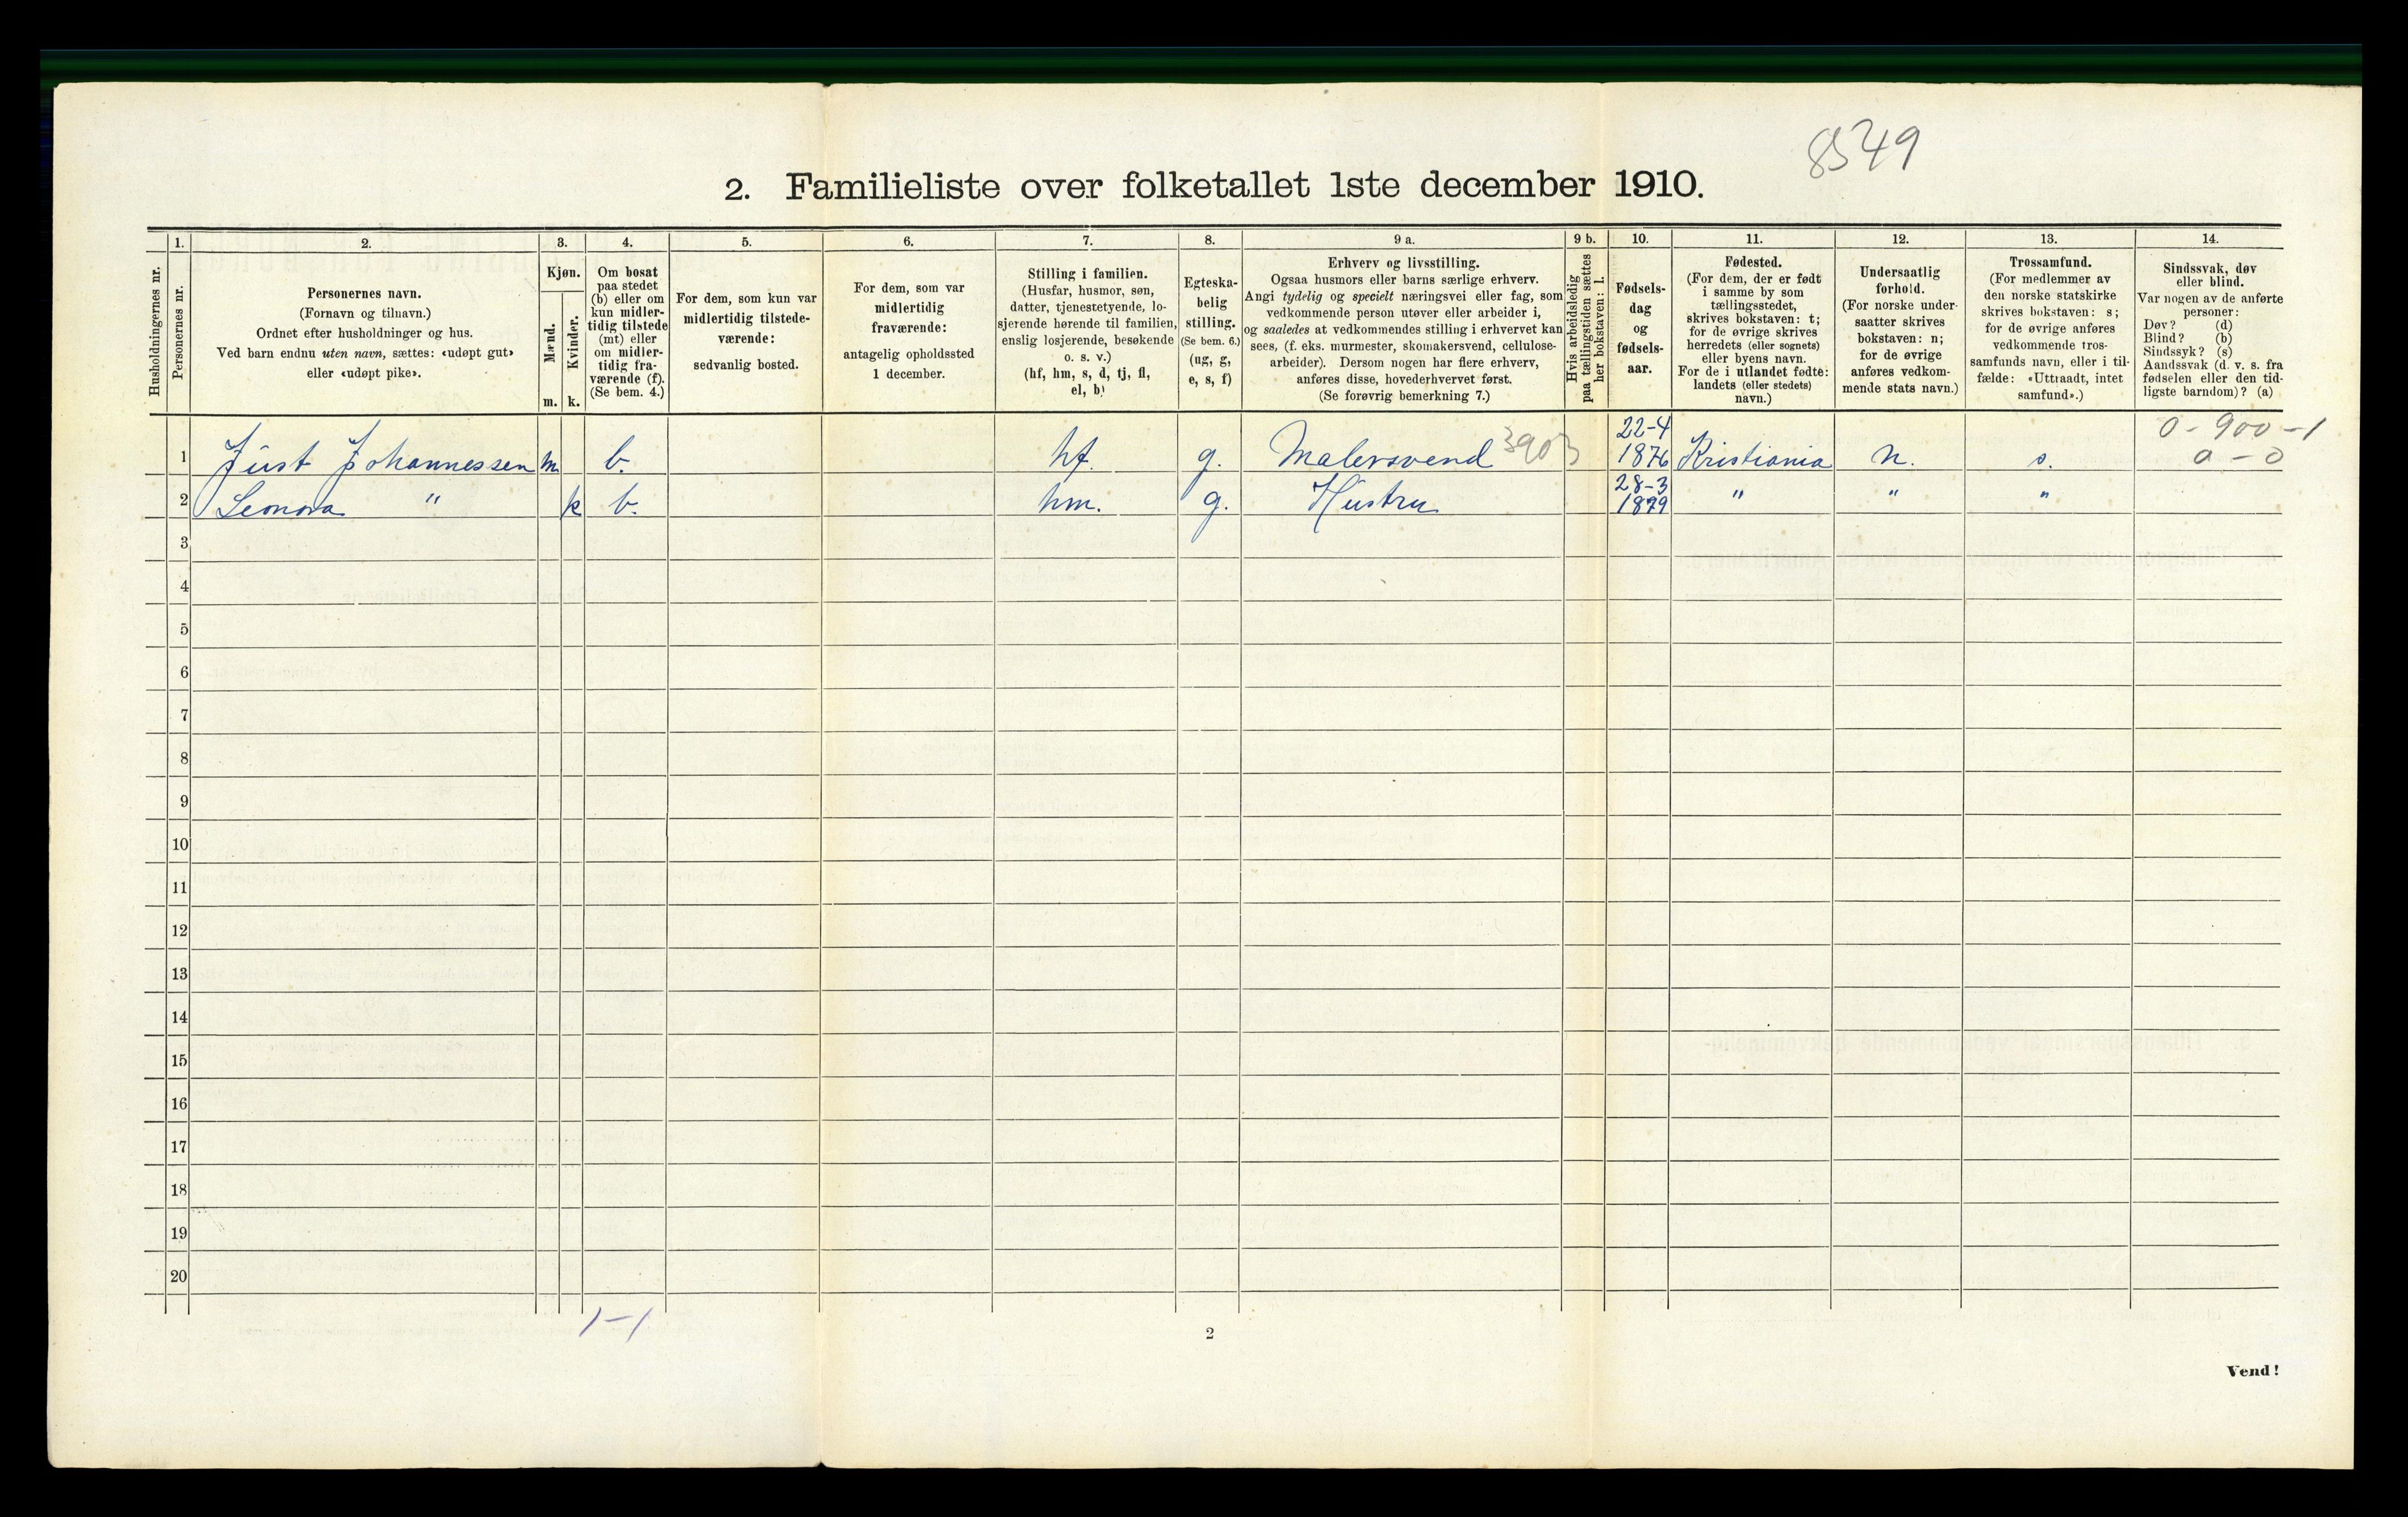 8549
2. Familieliste over folketallet 1ste december 1910.
Husholdningernes nr.
1.
Personernes nr.
2.
Personernes navn.
(Fornavn og tilnavn.)
Ordnet efter husholdninger og hus.
Ved barn endnu uten navn, sættes: «udøpt gut»
eller «udøpt pike».
3.
Kjøn.
Mænd.
m.
Kvinder.
k.
4.
Om bosat
paa stedet
(b) eller om
kun midler-
tidig tilstede
(mt) eller
om midler-
tidig fra-
værende (f).
(Se bem. 4.)
5.
For dem, som kun var
midlertidig tilstede-
værende:
sedvanlig bosted.
6.
For dem, som var
midlertidig
fraværende:
antagelig opholdssted
1 december.
7.
Stilling i familien.
(Husfar, husmor, søn,
datter, tjenestetyende, lo-
sjerende hørende til familien,
enslig losjerende, besøkende
o. s. v.)
(hf, hm, s, d, tj, fl,
el, b)
8.
Egteska-
belig
stilling.
(Se bem. 6.)
(ug, g,
e, s, f)
9 a.
Erhverv og livsstilling.
Ogsaa husmors eller barns særlige erhverv.
Angi tydelig og specielt næringsvei eller fag, som
vedkommende person utøver eller arbeider i,
og saaledes at vedkommendes stilling i erhvervet kan
sees, (f. eks. murmester, skomakersvend, cellulose-
arbeider). Dersom nogen har flere erhverv,
anføres disse, hovederhvervet først.
(Se forøvrig bemerkning 7.)
9 b.
Hvis arbeidsledig
paa tællingstiden sættes
her bokstaven: l.
10.
Fødsels-
dag
og
fødsels-
aar.
11.
Fødested.
(For dem, der er født
i samme by som
tællingsstedet,
skrives bokstaven: t;
for de øvrige skrives
herredets (eller sognets)
eller byens navn.
For de i utlandet fødte:
landets (eller stedets)
navn.)
12.
Undersaatlig
forhold.
(For norske under-
saatter skrives
bokstaven: n;
for de øvrige
anføres vedkom-
mende stats navn.)
13.
Trossamfund.
(For medlemmer av
den norske statskirke
skrives bokstaven: s;
for de øvrige anføres
vedkommende tros-
samfunds navn, eller i til-
fælde: «Uttraadt, intet
samfund».)
14.
Sindssvak, døv
eller blind.
Var nogen av de anførte
personer:
Døv? (d)
Blind? (b)
Sindssyk? (s)
Aandssvak (d. v. s. fra
fødselen eller den tid-
ligste barndom)? (a)
1 Just Johannessen m b. hf. g. Malersvend 3903 22-4 1876 Kristiania n. s. 0-900-1
0-0
2 Leonora " k b. hm. g. Hustru 28-3 1879 " " "
3
4
5
6
7
8
9
10
11
12
13
14
15
16
17
18
19
20
1-1
2
Vend!